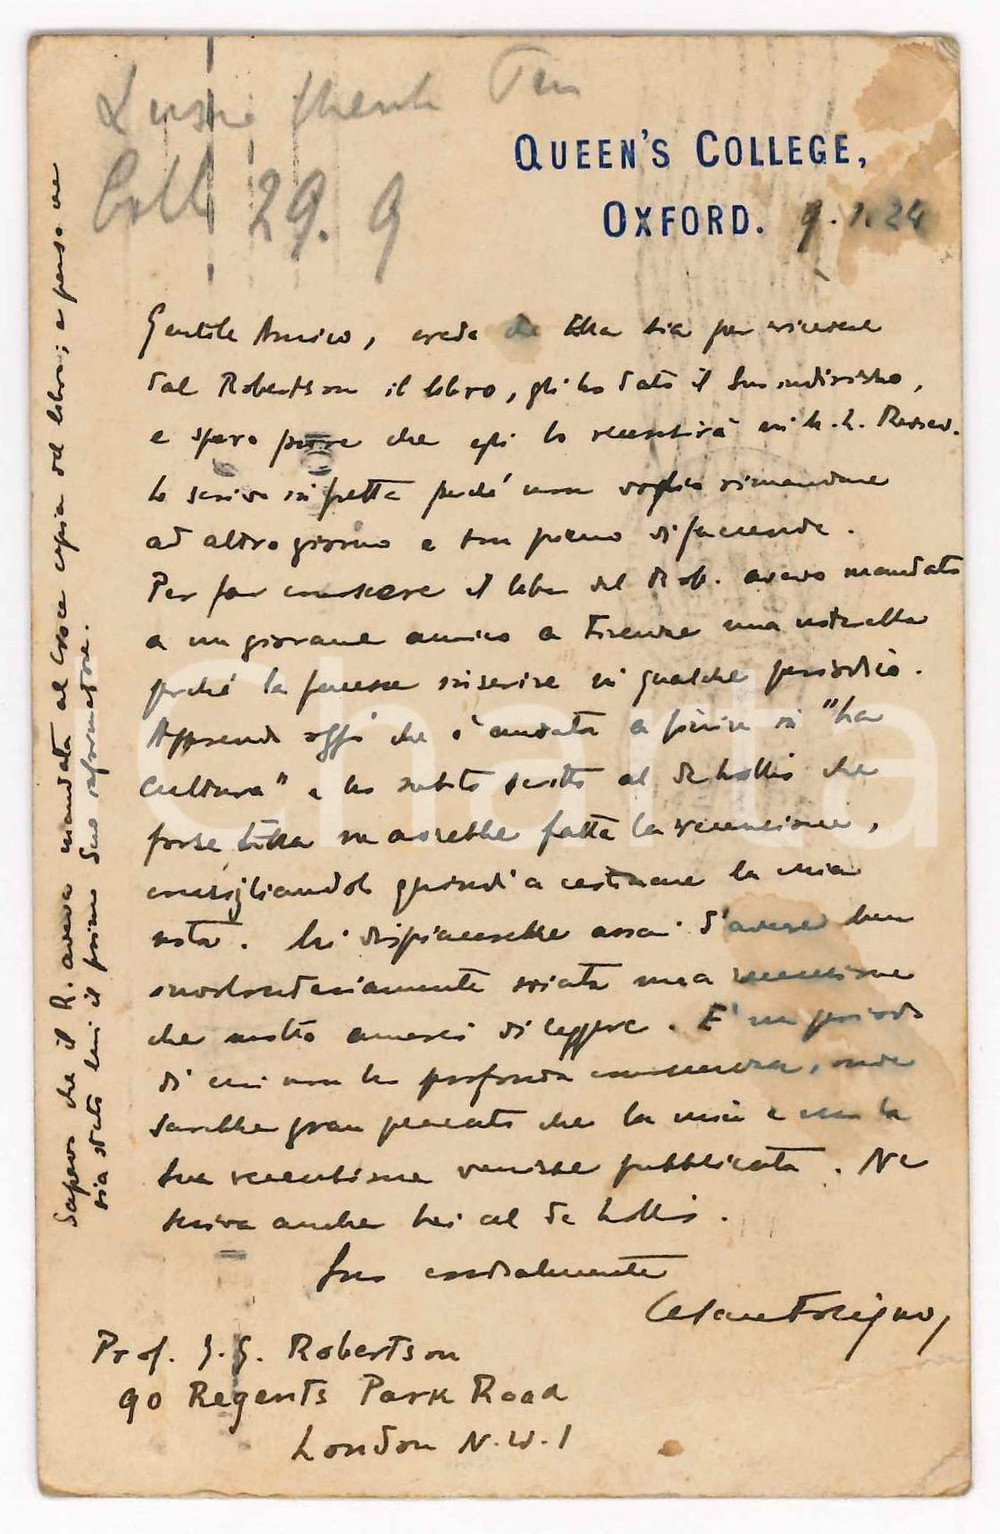 29. 9
QUEEN'S COLLEGE,
OXFORD. 9.1.24
Gentile Amico, credo che Ella sia per ricevere
dal Robertson il libro, gli ho dato il Suo indirizzo,
e spero pure che egli lo recensirà in M. L. Review.
Le scrivo in fretta perché non voglio rimandare
ad altro giorno e son pieno di faccende.
Per far conoscere il libro del Rob. avevo mandato
a un giovane amico a Firenze una noterella
perché la facesse inserire in qualche periodico.
Apprendo oggi che è andata a finire in "La
Cultura" e ho subito scritto al De Lollis che
forse Ella ne avrebbe fatta la recensione,
consigliandolo quindi a cestinare la mia
nota. Mi dispiacerebbe assai d'avere ben
involontariamente sviata una recensione
che molto amerei di leggere. E' un periodo
di cui non ho profonda conoscenza, onde
sarebbe gran peccato che la mia e non la
Sua recensione venisse pubblicata. Ne
scriva anche Lei al De Lollis.
Suo cordialmente
Cesare Foligno,
Prof. J. G. Robertson
90 Regents Park Road
London N.W.1
Sapevo che il R. aveva mandata al Croce copia del libro; e penso che
sia stato Lei il primo Suo informatore.
Charta